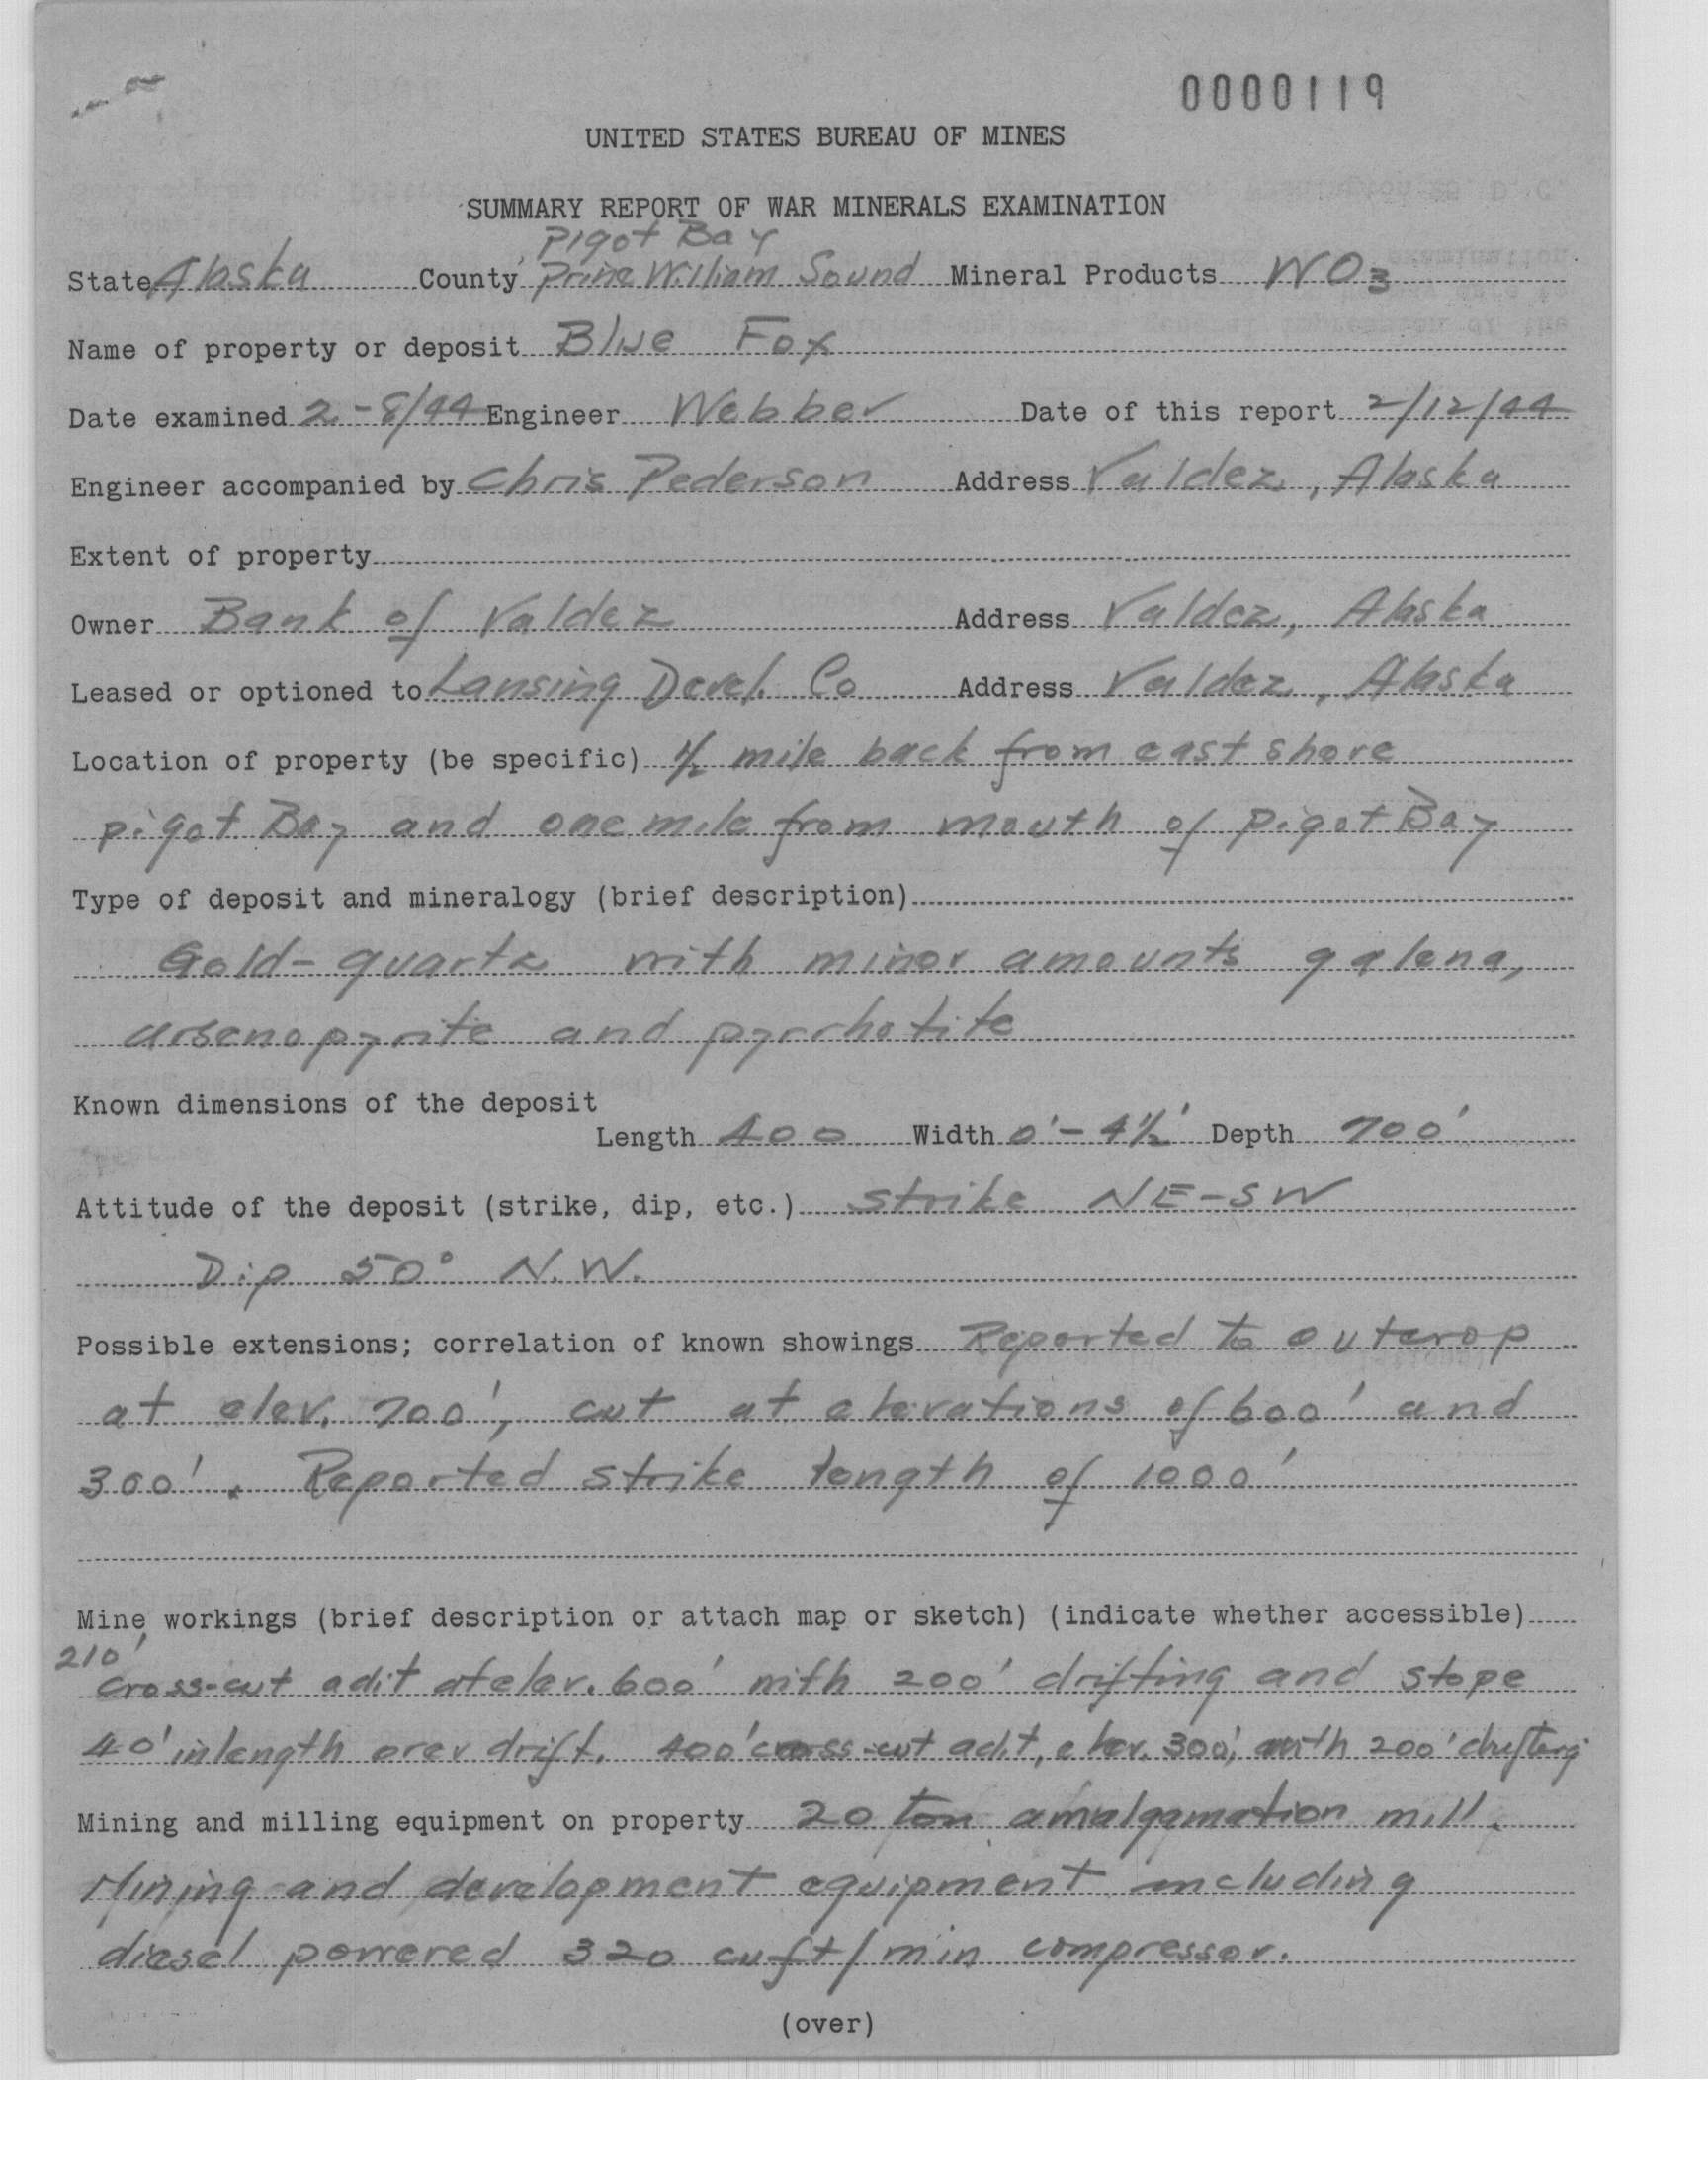 0000119
UNITED STATES BUREAU OF MINES
SUMMARY REPORT OF WAR MINERALS EXAMINATION
Pigot Bay
State Alaska County Prince William Sound Mineral Products WO3
Name of property or deposit Blue Fox
Date examined 2-8/44 Engineer Webber Date of this report 2/12/44
Engineer accompanied by Chris Pederson Address Valdez, Alaska
Extent of property
Owner Bank of Valdez Address Valdez, Alaska
Leased or optioned to Lansing Devel. Co Address Valdez, Alaska
Location of property (be specific) 1/2 mile back from east shore
pigot Bay and one mile from mouth of pigot Bay
Type of deposit and mineralogy (brief description)
Gold-quartz with minor amounts galena,
arsenopyrite and pyrrhotite
Known dimensions of the deposit
Length 400 Width 0'-4½' Depth 700'
Attitude of the deposit (strike, dip, etc.) strike NE-SW
Dip 50° N.W.
Possible extensions; correlation of known showings Reported to outcrop
at elev. 700', cut at elevations of 600' and
300'. Reported strike length of 1000'
Mine workings (brief description or attach map or sketch) (indicate whether accessible)
210'
cross-cut adit at elev. 600' with 200' drifting and stope
40' in length over drift. 400' cross-cut adit, elev. 300', with 200' drifting
Mining and milling equipment on property 20 ton amalgamation mill.
Mining and development equipment including
diesel powered 320 cu ft/min compressor.
(over)